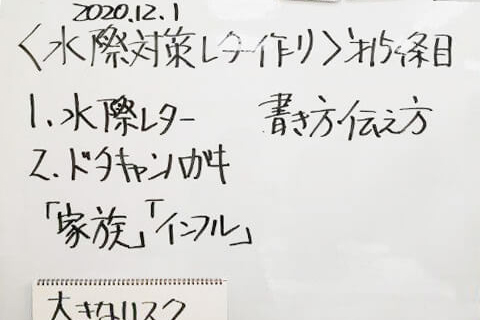 2020.12.1
〈水際対策レター作り〉オ15条目
1.水際レター 書き方伝え方
2.ドタキャンのガキ
「家族」「インフル」
大きなリスク